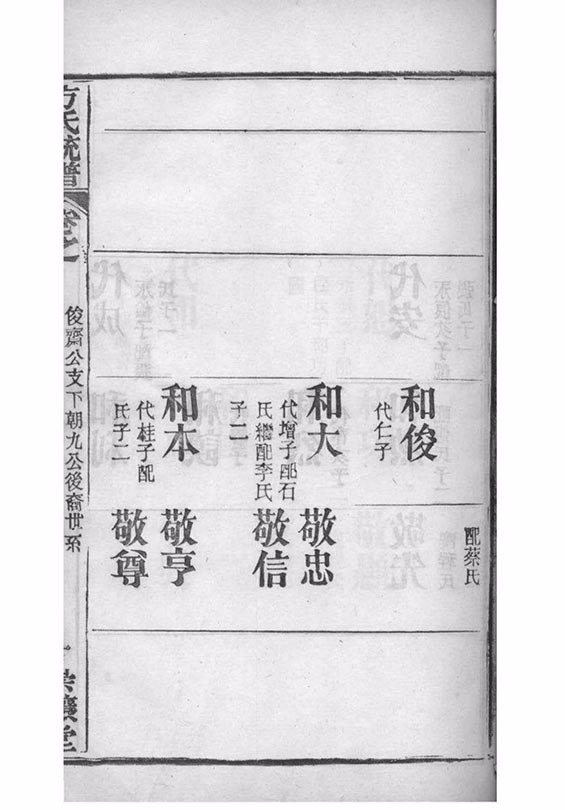 配蔡氏
和俊
代仁子
和大
代增子配石
氏繼配李氏
子二
敬忠
敬信
和本
代桂子配
氏子二
敬亨
敬尊
方氏統譜
卷之一
俊齋公支下朝九公後裔世系